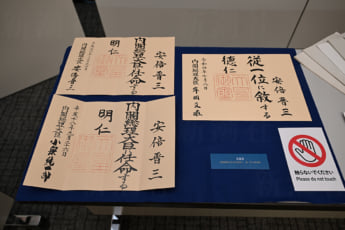 安倍晋三
内閣総理大臣に任命する
明仁
内閣総理大臣 安倍晋三
安倍晋三
内閣総理大臣に任命する
明仁
平成十八年九月二十六日
内閣総理大臣 小泉純一郎
安倍晋三
従一位に叙する
徳仁
内閣総理大臣 岸田文雄
触らないでください
Please do not touch